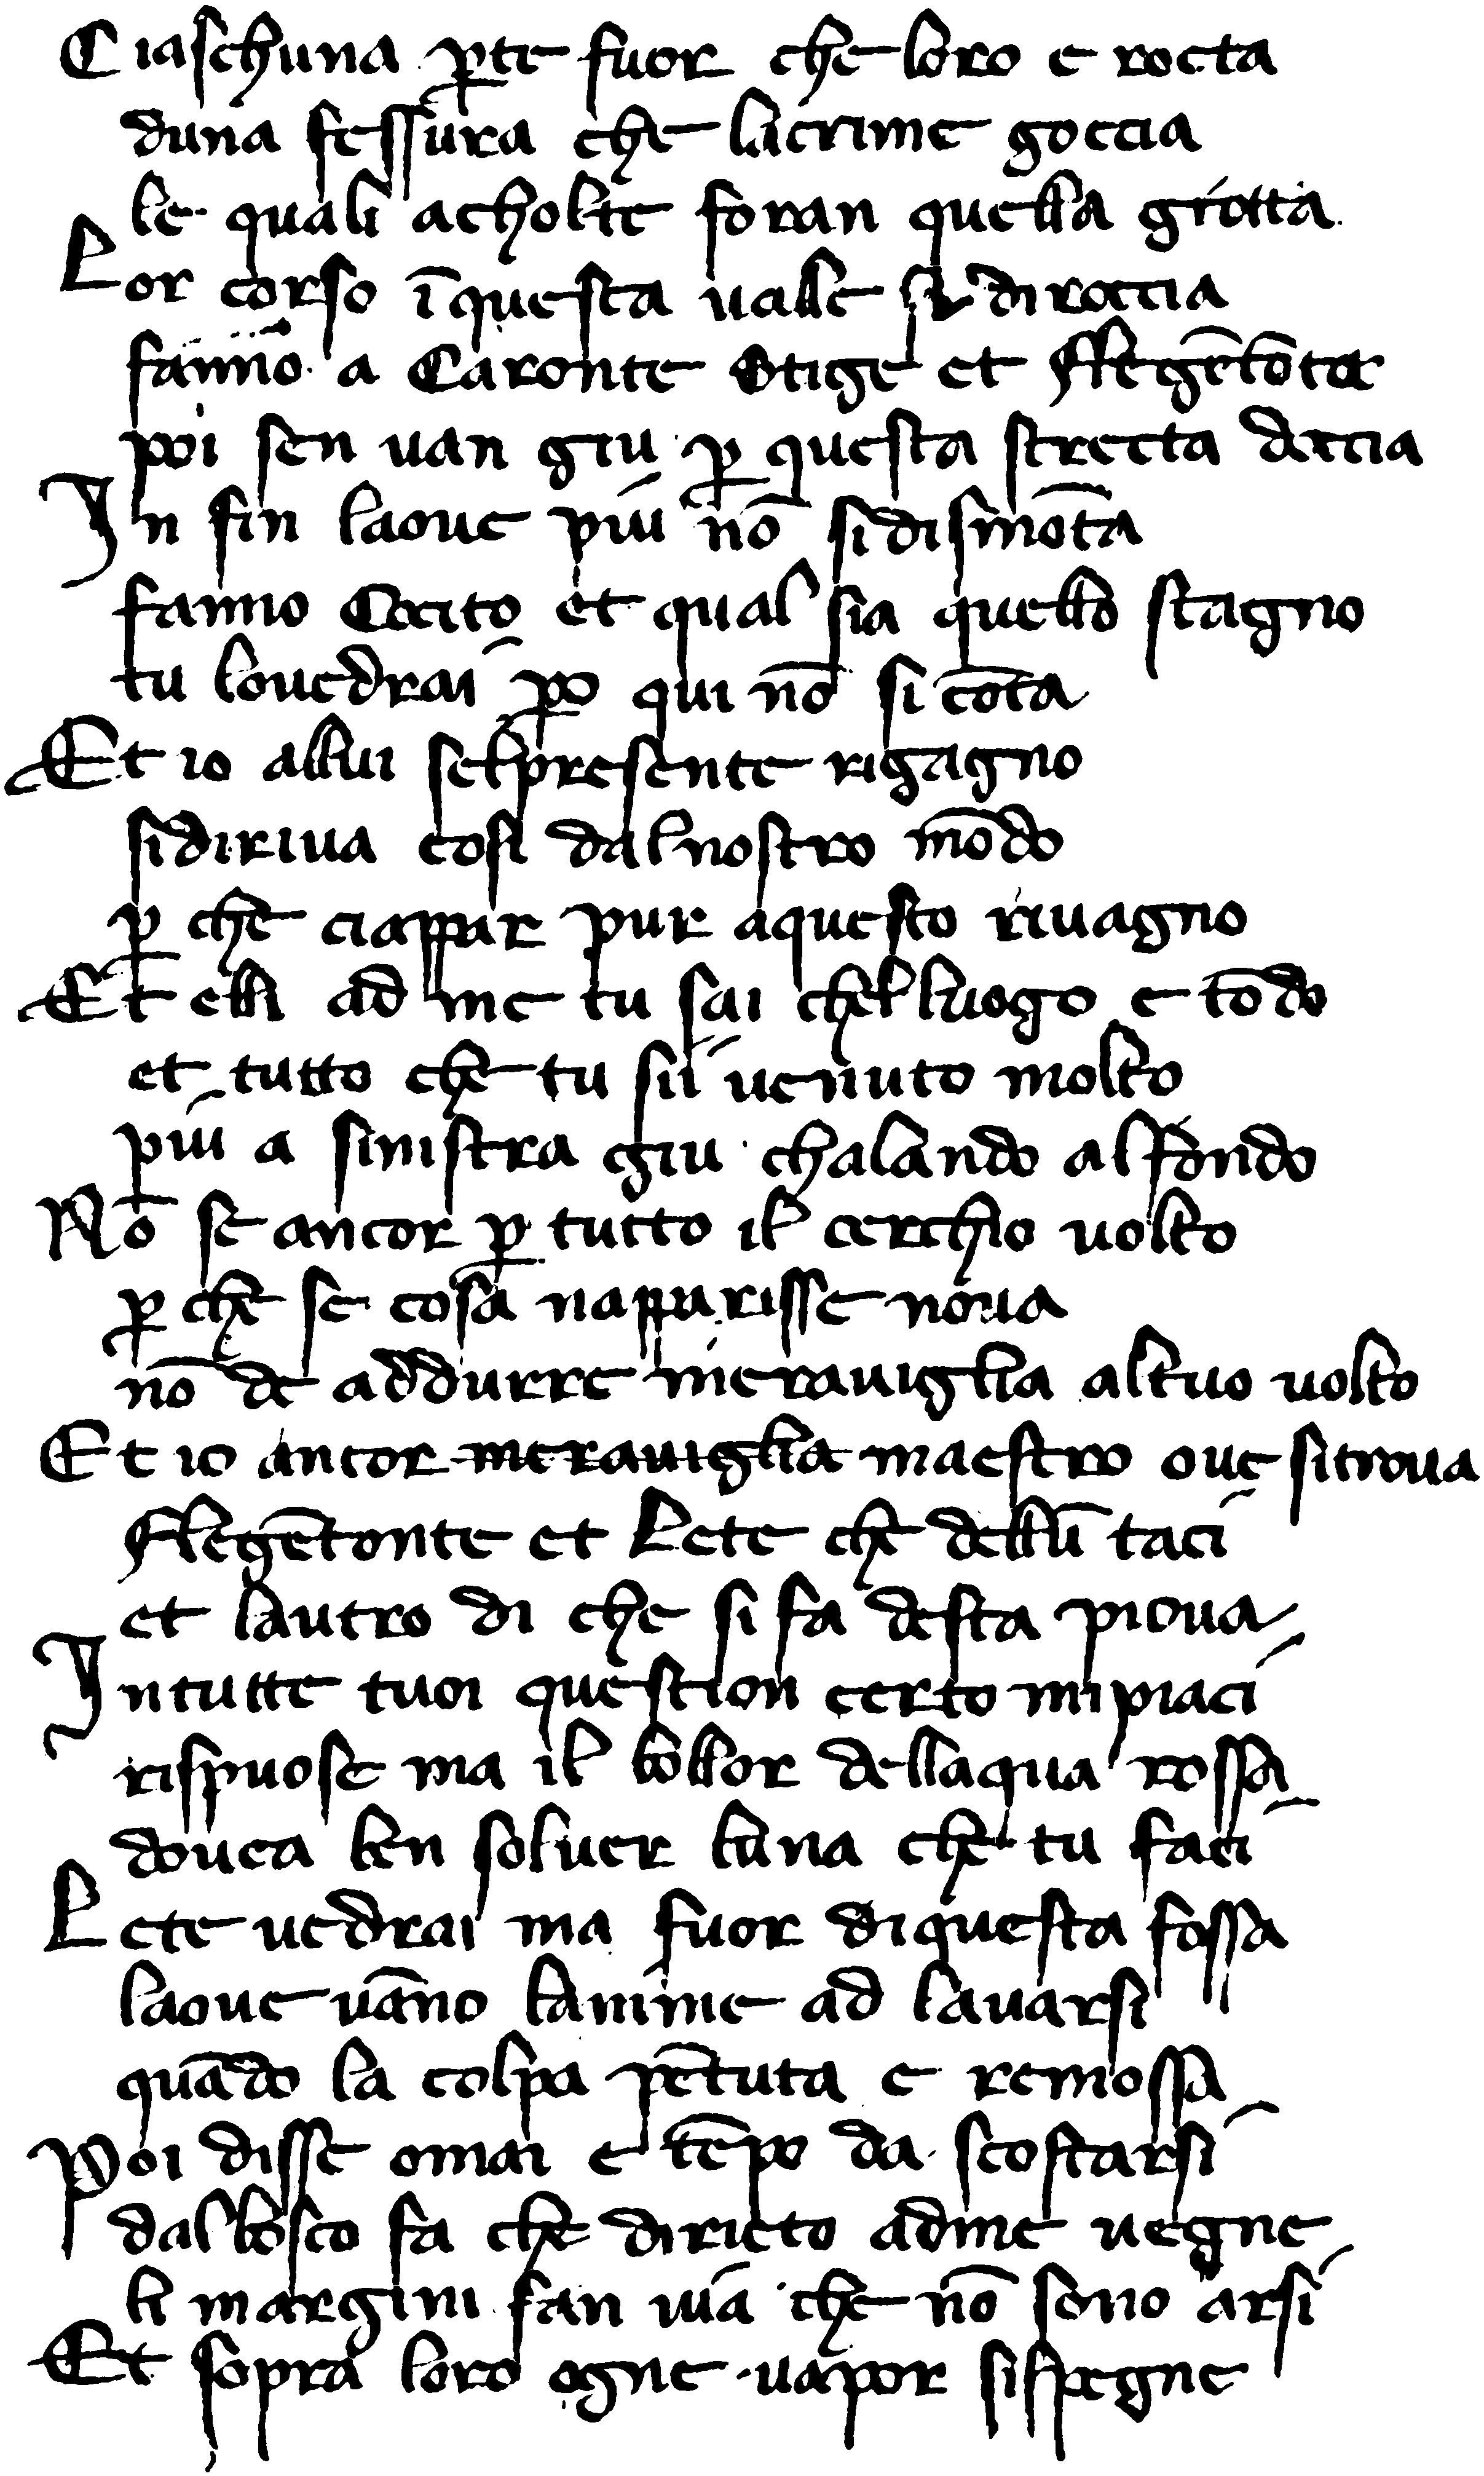 Ciaschuna ꝑte fuor che loro e rocta
duna fessura che lacrime goccia
le quali acholte foran quella grotta
Lor corso ī questa ualle si diroccia
fanno a Caronte Stige et Flegētōte
poi sen uan giu ꝑ questa strecta doccia
In fin laoue piu nō si dismōta
fanno Cocito et qual sia quello stagno
tu louedrai ꝑo qui nō si cōta
Et io allui selpresente rigagno
sidiriua cosi dalnostro mōdo
ꝑ che ciappar pur aquesto riuagno
Et elli ad me tu sai chelluogo e tōdo
et tutto che tu sii uenuto molto
piu a sinistra giu chalando alfondo
Nō se ancor ꝑ tutto il cerchio uolto
ꝑ che se cosa napparisse noua
nō de addurre merauiglia altuo uolto
Et io ancor merauiglia maestro oue sitroua
Flegētonte et Lete che dellū taci
et lautro di che si fa desta pioua
Intutte tuoi question certo mipiaci
rispuose ma il bollor dellaqua rossa
douea ben soluer luna che tu faci
Lete uedrai ma fuor diquesta fossa
laoue uāno lanime ad lauarsi
quādo la colpa pētuta e remossa
Poi disse omai e tēpo da scostarsi
dalbosco fa che dirieto adme uegne
li margini fan uia che nō sono arsi
Et sopra loro ogne uapor sispegne